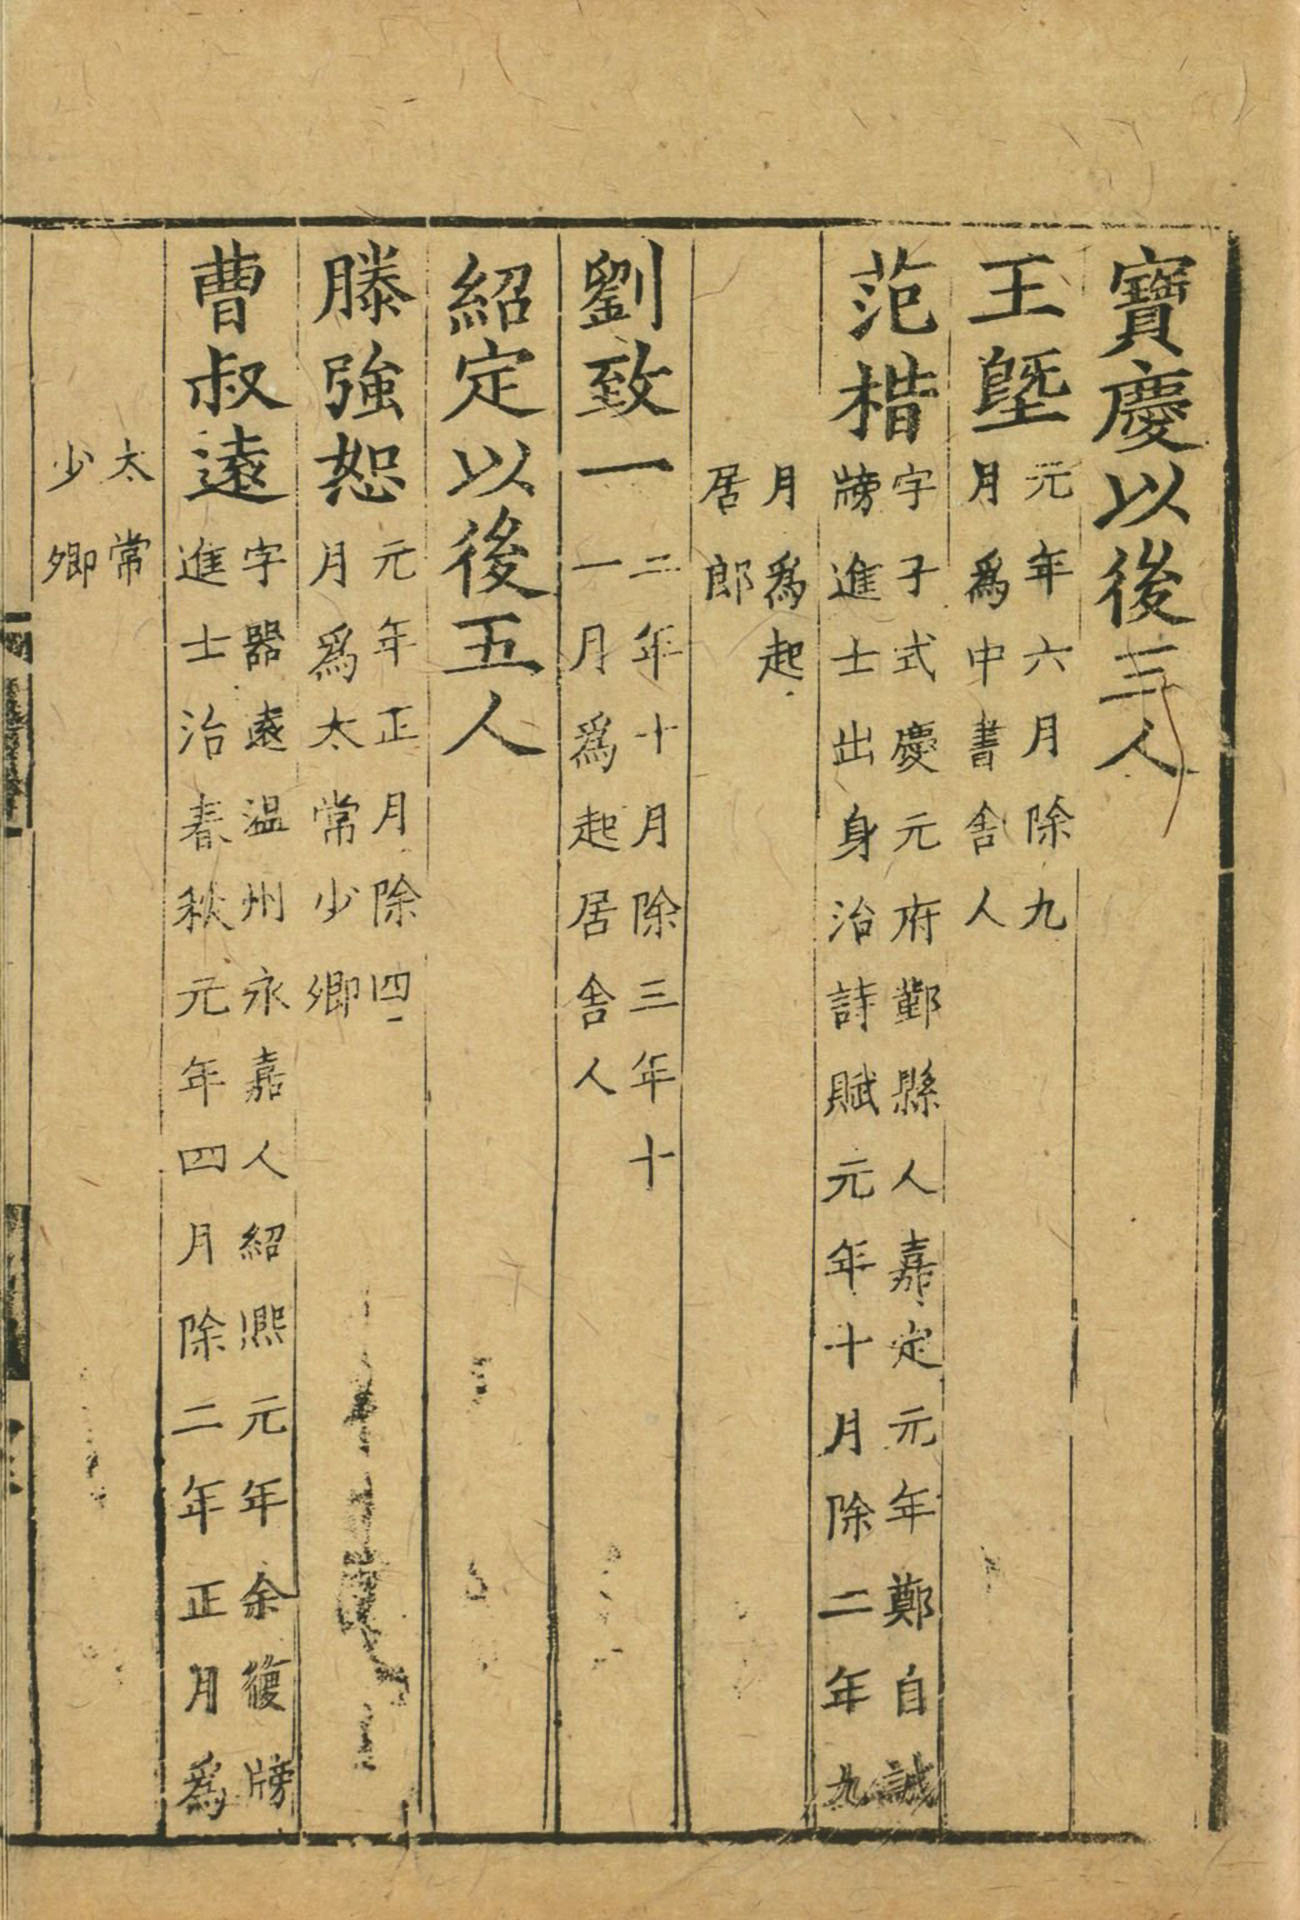 寶慶以後三人
王塈元年六月除九
月爲中書舎人
范楷字子式慶元府鄞縣人嘉定元年鄭自誠
牓進士出身治詩賦元年十月除二年九
月爲起
居郎
劉致一二年十月除三年十
一月爲起居舎人
紹定以後五人
滕強恕元年正月除四
月爲太常少卿
曹叔遠字器遠温州永嘉人紹熈元年余復牓
進士治春秋元年四月除二年正月爲
太常
少卿